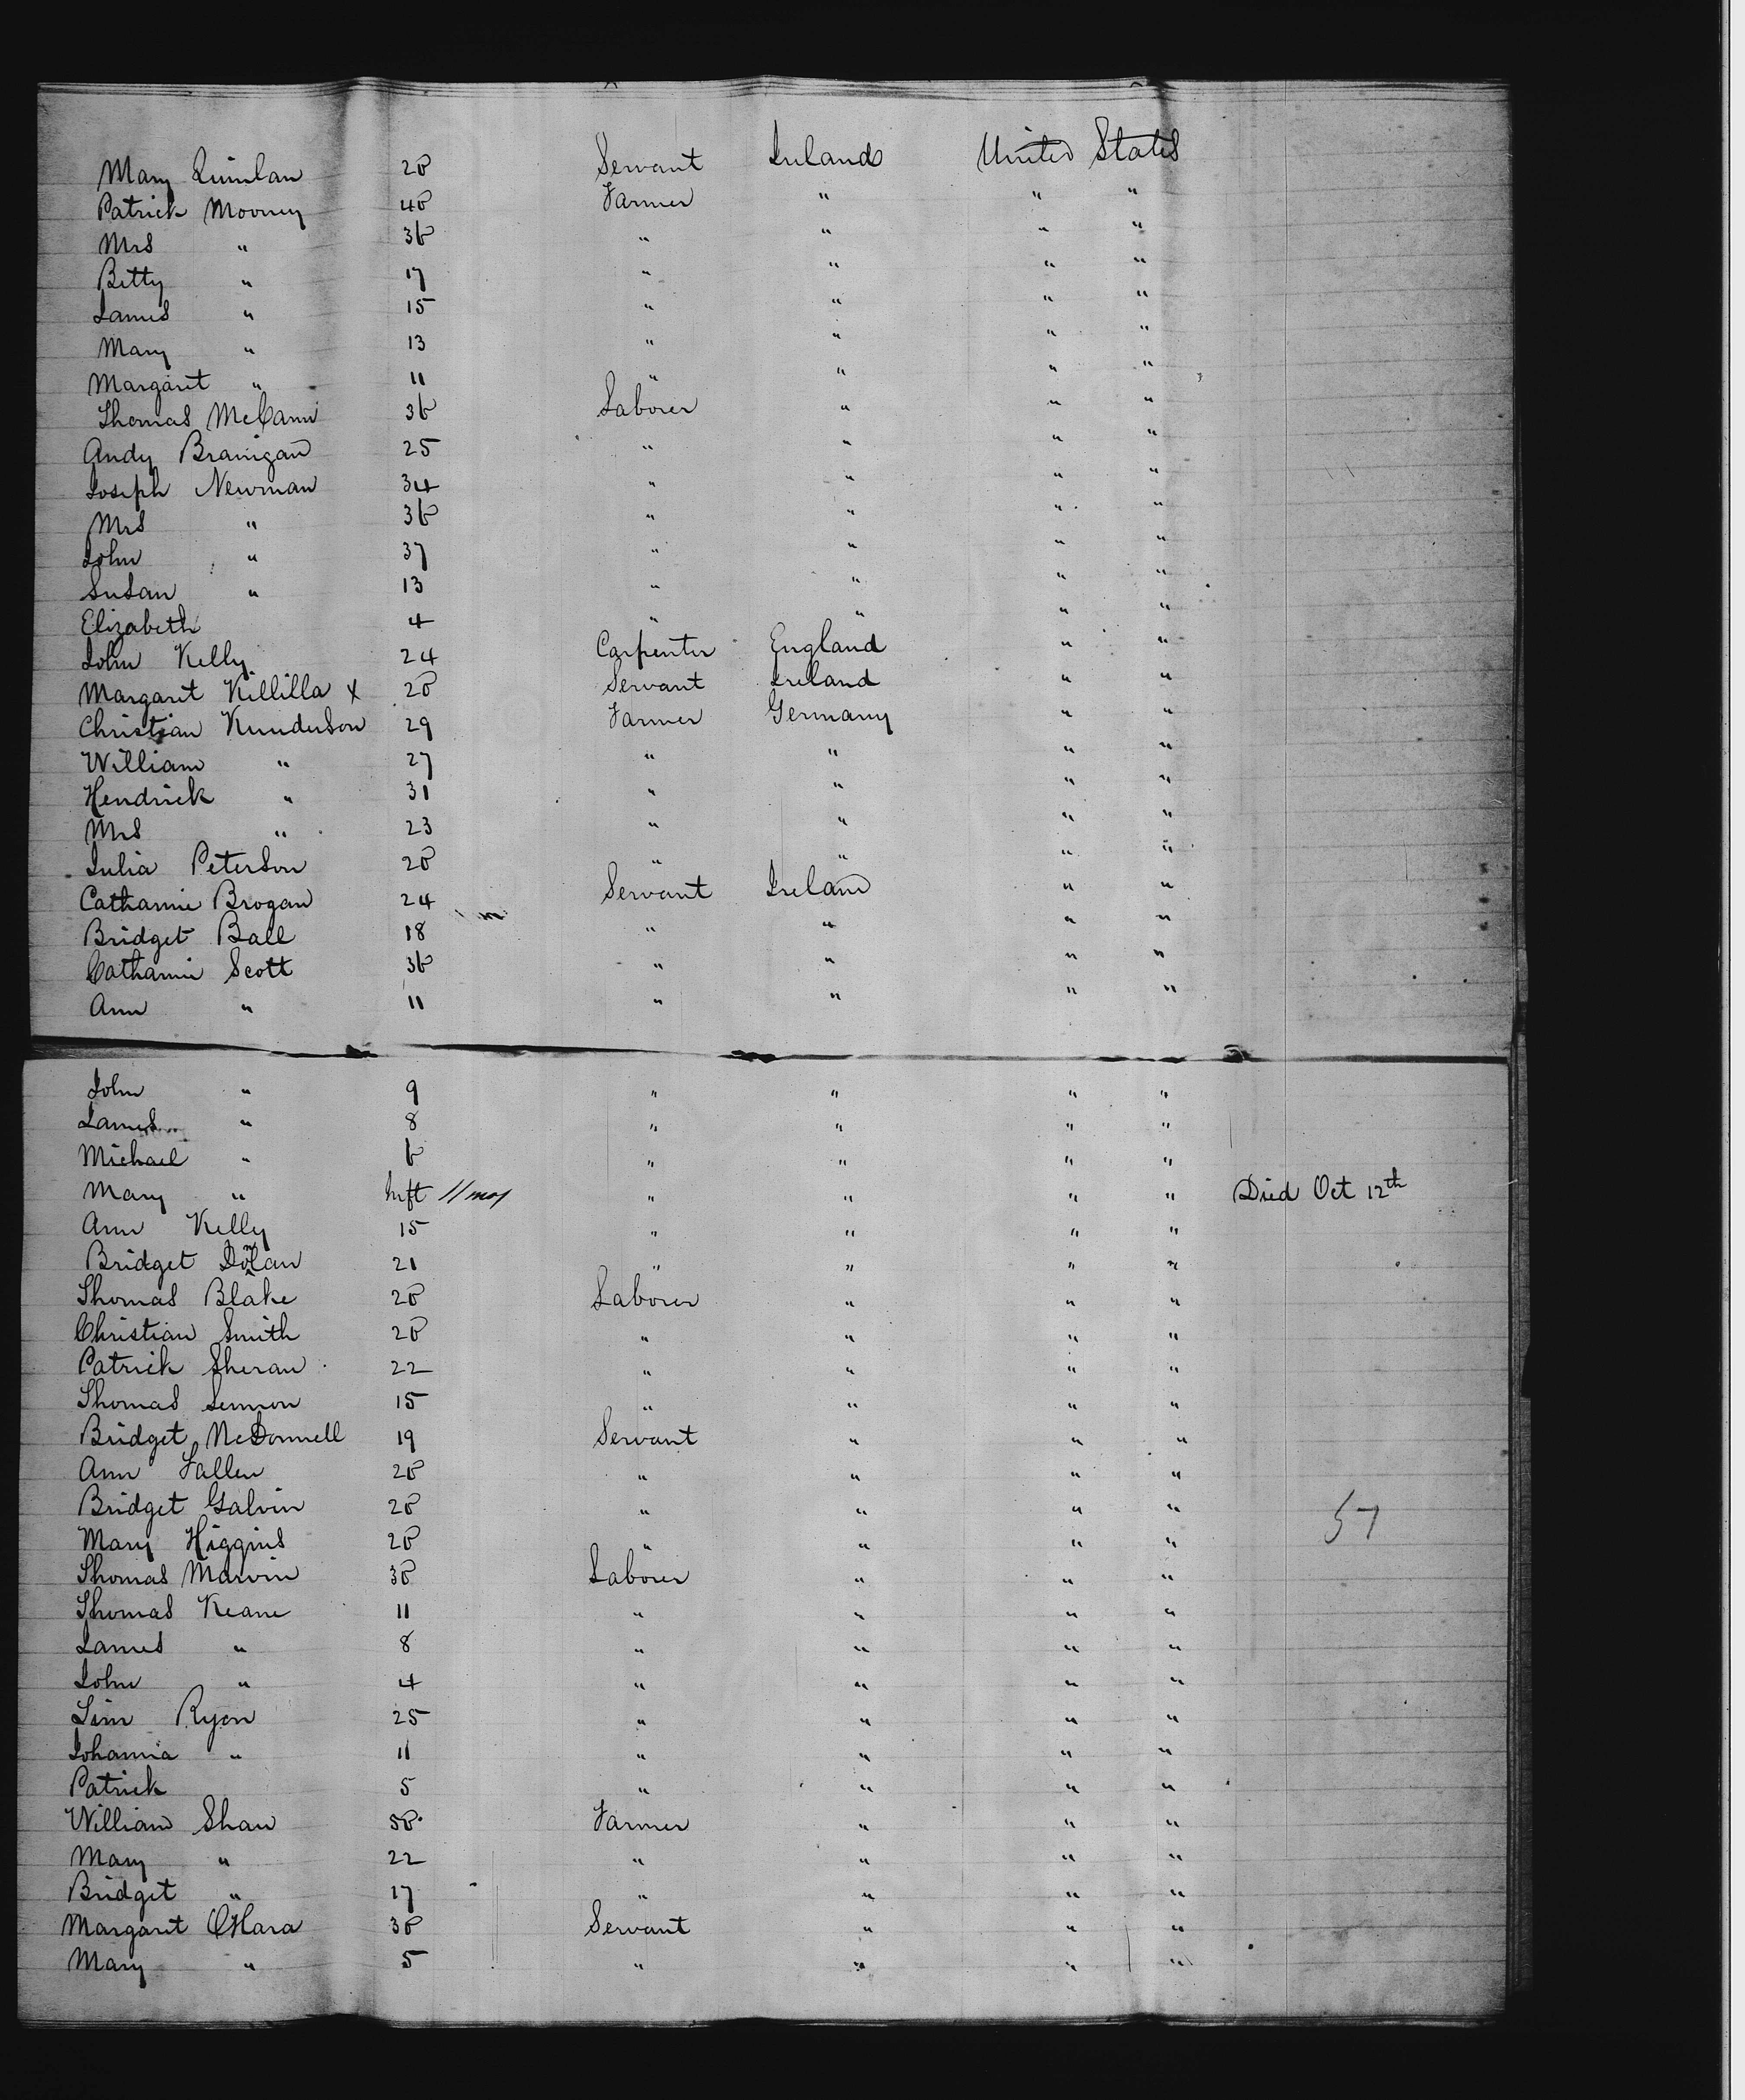 Mary Quinlan 20 Servant Ireland United States
Patrick Mooney 40 Farmer " " "
Mrs " 36 " " " "
Betty " 17 " " " "
James " 15 " " " "
Mary " 13 " " " "
Margaret " 11 " " " "
Thomas McCann 36 Laborer " " "
Andy Branigan 25 " " " "
Joseph Newman 34 " " " "
Mrs " 36 " " " "
John " 37 " " " "
Susan " 13 " " " "
Elizabeth 4 " " " "
John Kelly 24 Carpenter England " "
Margaret Killilla X 20 Servant Ireland " "
Christian Kunderson 29 Farmer Germany " "
William " 27 " " " "
Hendrick " 31 " " " "
Mrs " 23 " " " "
Julia Peterson 20 " " " "
Catharine Brogan 24 Servant Ireland " "
Bridget Ball 18 " " " "
Catharine Scott 36 " " " "
Ann " 11 " " " "
John " 9 " " " "
James " 8 " " " "
Michael " 6 " " " "
Mary " Inft 11 mos " " " " Died Oct 12th
Ann Kelly 15 " " " "
Bridget Dolan 21 " " " "
Thomas Blake 20 Laborer " " "
Christian Smith 20 " " " "
Patrick Sheran 22 " " " "
Thomas Lennon 15 " " " "
Bridget McDonnell 19 Servant " " "
Ann Fallen 20 " " " "
Bridget Galvin 20 " " " "
57
Mary Higgins 20 " " " "
Thomas Marvin 30 Laborer " " "
Thomas Keane 11 " " " "
James " 8 " " " "
John " 4 " " " "
Jim Ryon 25 " " " "
Johanna " 11 " " " "
Patrick 5 " " " "
William Shaw 50 Farmer " " "
Mary " 22 " " " "
Bridget " 17 " " " "
Margaret OHara 30 Servant " " "
Mary " 5 " " " "